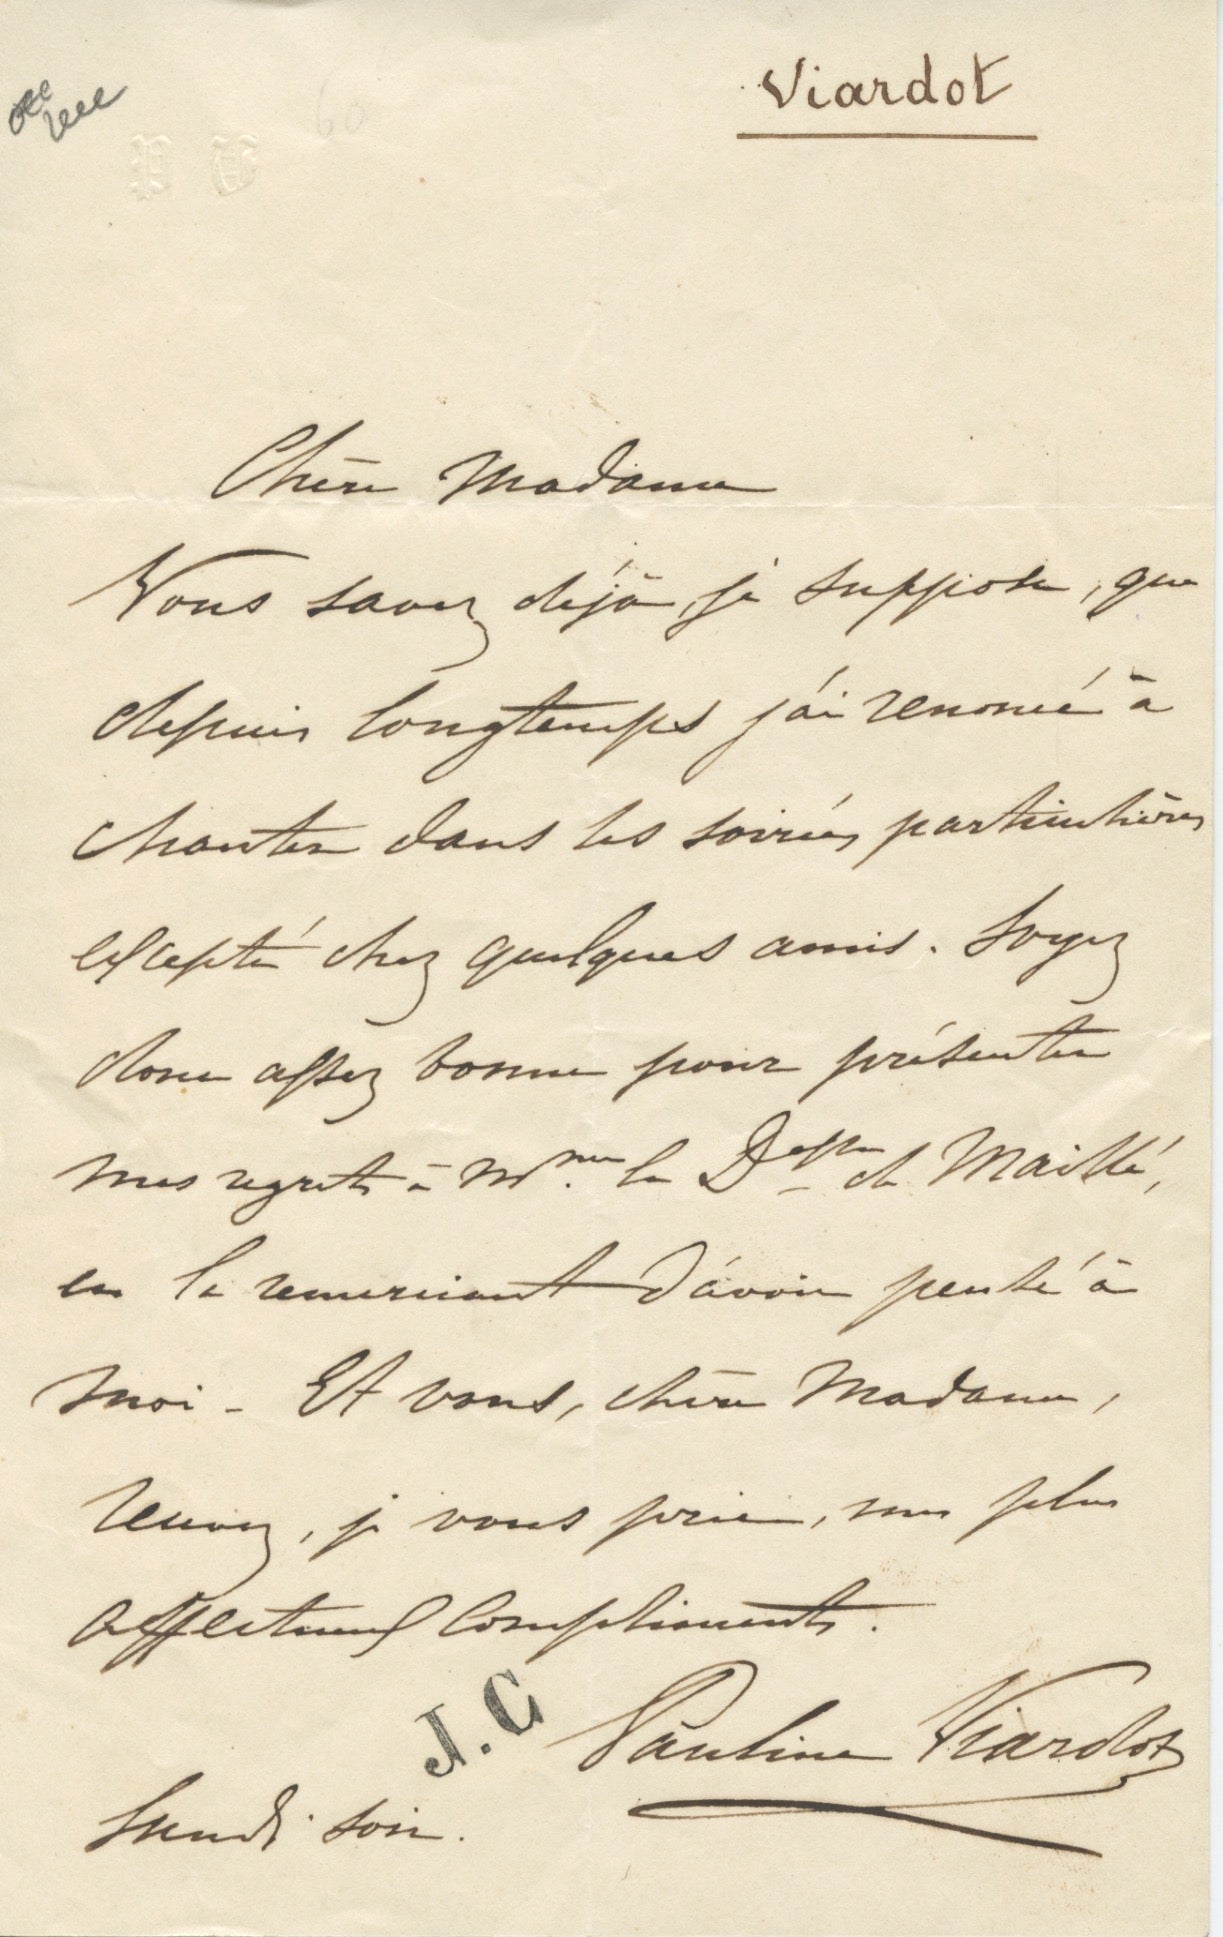 Viardot
60
P V
Chère Madame
Vous savez déjà, je suppose, que
depuis longtemps j'ai renoncé à
chanter dans les soirées particulières
excepté chez quelques amis. Soyez
donc assez bonne pour présenter
mes regrets à Mme. la Desse de Maillé,
en la remerciant d'avoir pensé à
moi - Et vous, chère Madame,
recevez, je vous prie, mes plus
affectueux compliments.
J.C
Pauline Viardot
Lundi soir.